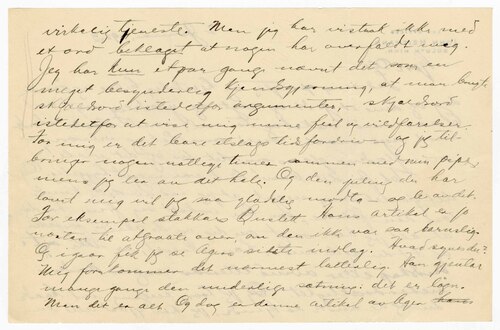 virkelig tjeneste. Men jeg har vistnok ikke med
et ord beklaget at nogen har overfaldt mig.
Jeg har kun et par gange nævnt det som en
meget besynderlig kjendsgjerning, at man brugte
skjældsord istedetfor argumenter, skjældsord
istedetfor at vise mig mine feil og vildfarelser.
For mig er det bare etslags tidsfordriv og jeg til-
bringer nogen nattlige timer sammen med min pipe,
mens jeg ler av det hele. Og den juling du har
lovet mig vil jeg saa gladelig motta og le av det.
For eksempel stakkars Hans artikel er jo
næsten be at graate over, om den ikke var saa barnslig.
Og igaar fik jeg se siste indlæg. Hvad synes du?
Mig forekommer det nærmest latterlig. Han gjentar
mange gange den underlige sætning: det er løgn.
Men det er alt. Og dog er denne artikel av